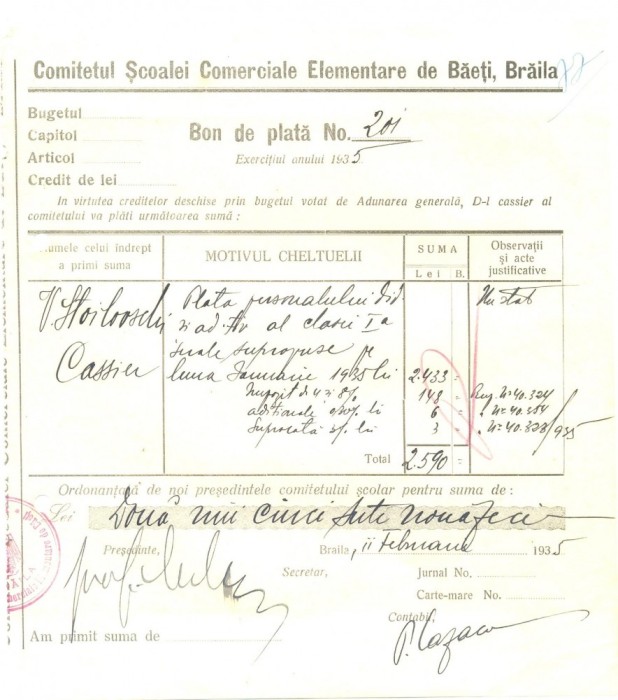 Comitetul Școalei Comerciale Elementare de Băeți, Brăila
Bugetul
Capitol
Bon de plată No. 201
Articol
Exercițiul anului 1935
Credit de lei
In virtutea creditelor deschise prin bugetul votat de Adunarea generală, D-l cassier al
comitetului va plăti următoarea sumă :
Numele celui îndrept
a primi suma
MOTIVUL CHELTUELII
SUMA
Lei B.
Observații
și acte
justificative
V. Stoilovschi
Cassier
Plata personalului did
și ad-tiv al clasei I a
pe
luna Ianuarie 1935 lei 2.433 =
Impozit de 4 si 8% 148 = Reg. No 40.324
aditionale lei 6 " No 40.
Suprocotă lei 3 " No 40.328/935
Un stat
Total 2.590 =
Ordonanțată de noi președintele comitetului școlar pentru suma de :
Lei Două mii cinci sute nouăzeci
Președinte,
Braila, 11 Februarie 1935
Secretar,
Jurnal No.
Carte-mare No.
Contabil,
P. Cazacu
Am primit suma de